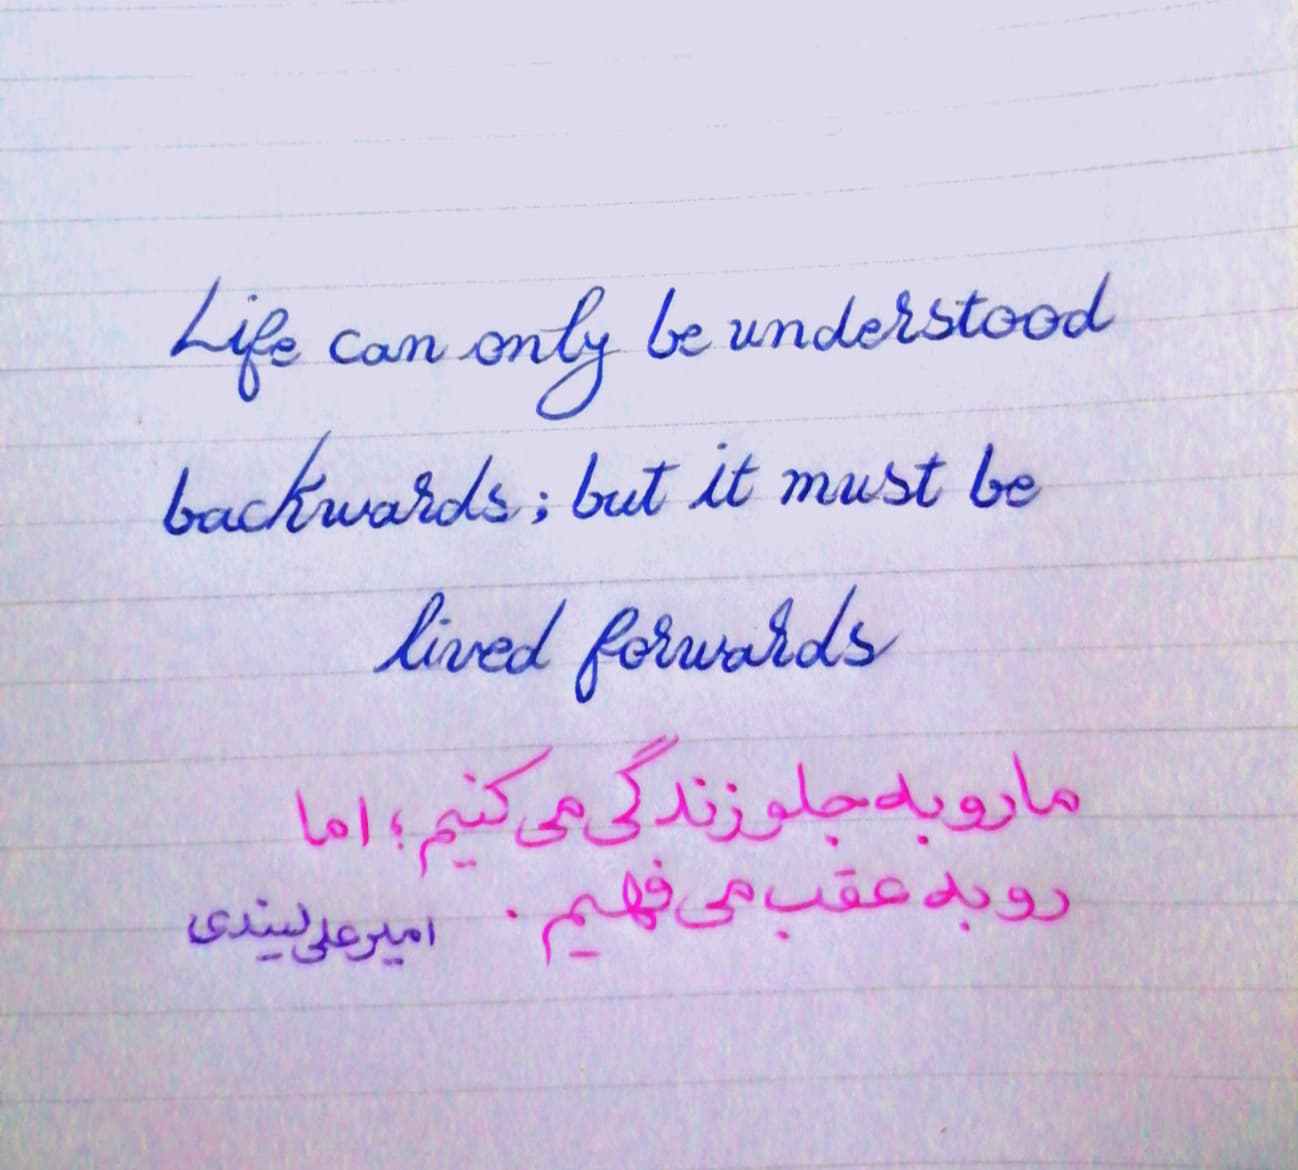 Life can only be understood
backwards; but it must be
lived forwards
ما رو به جلو زندگی می کنیم؛ اما
رو به عقب می فهیم.
امیرعلی